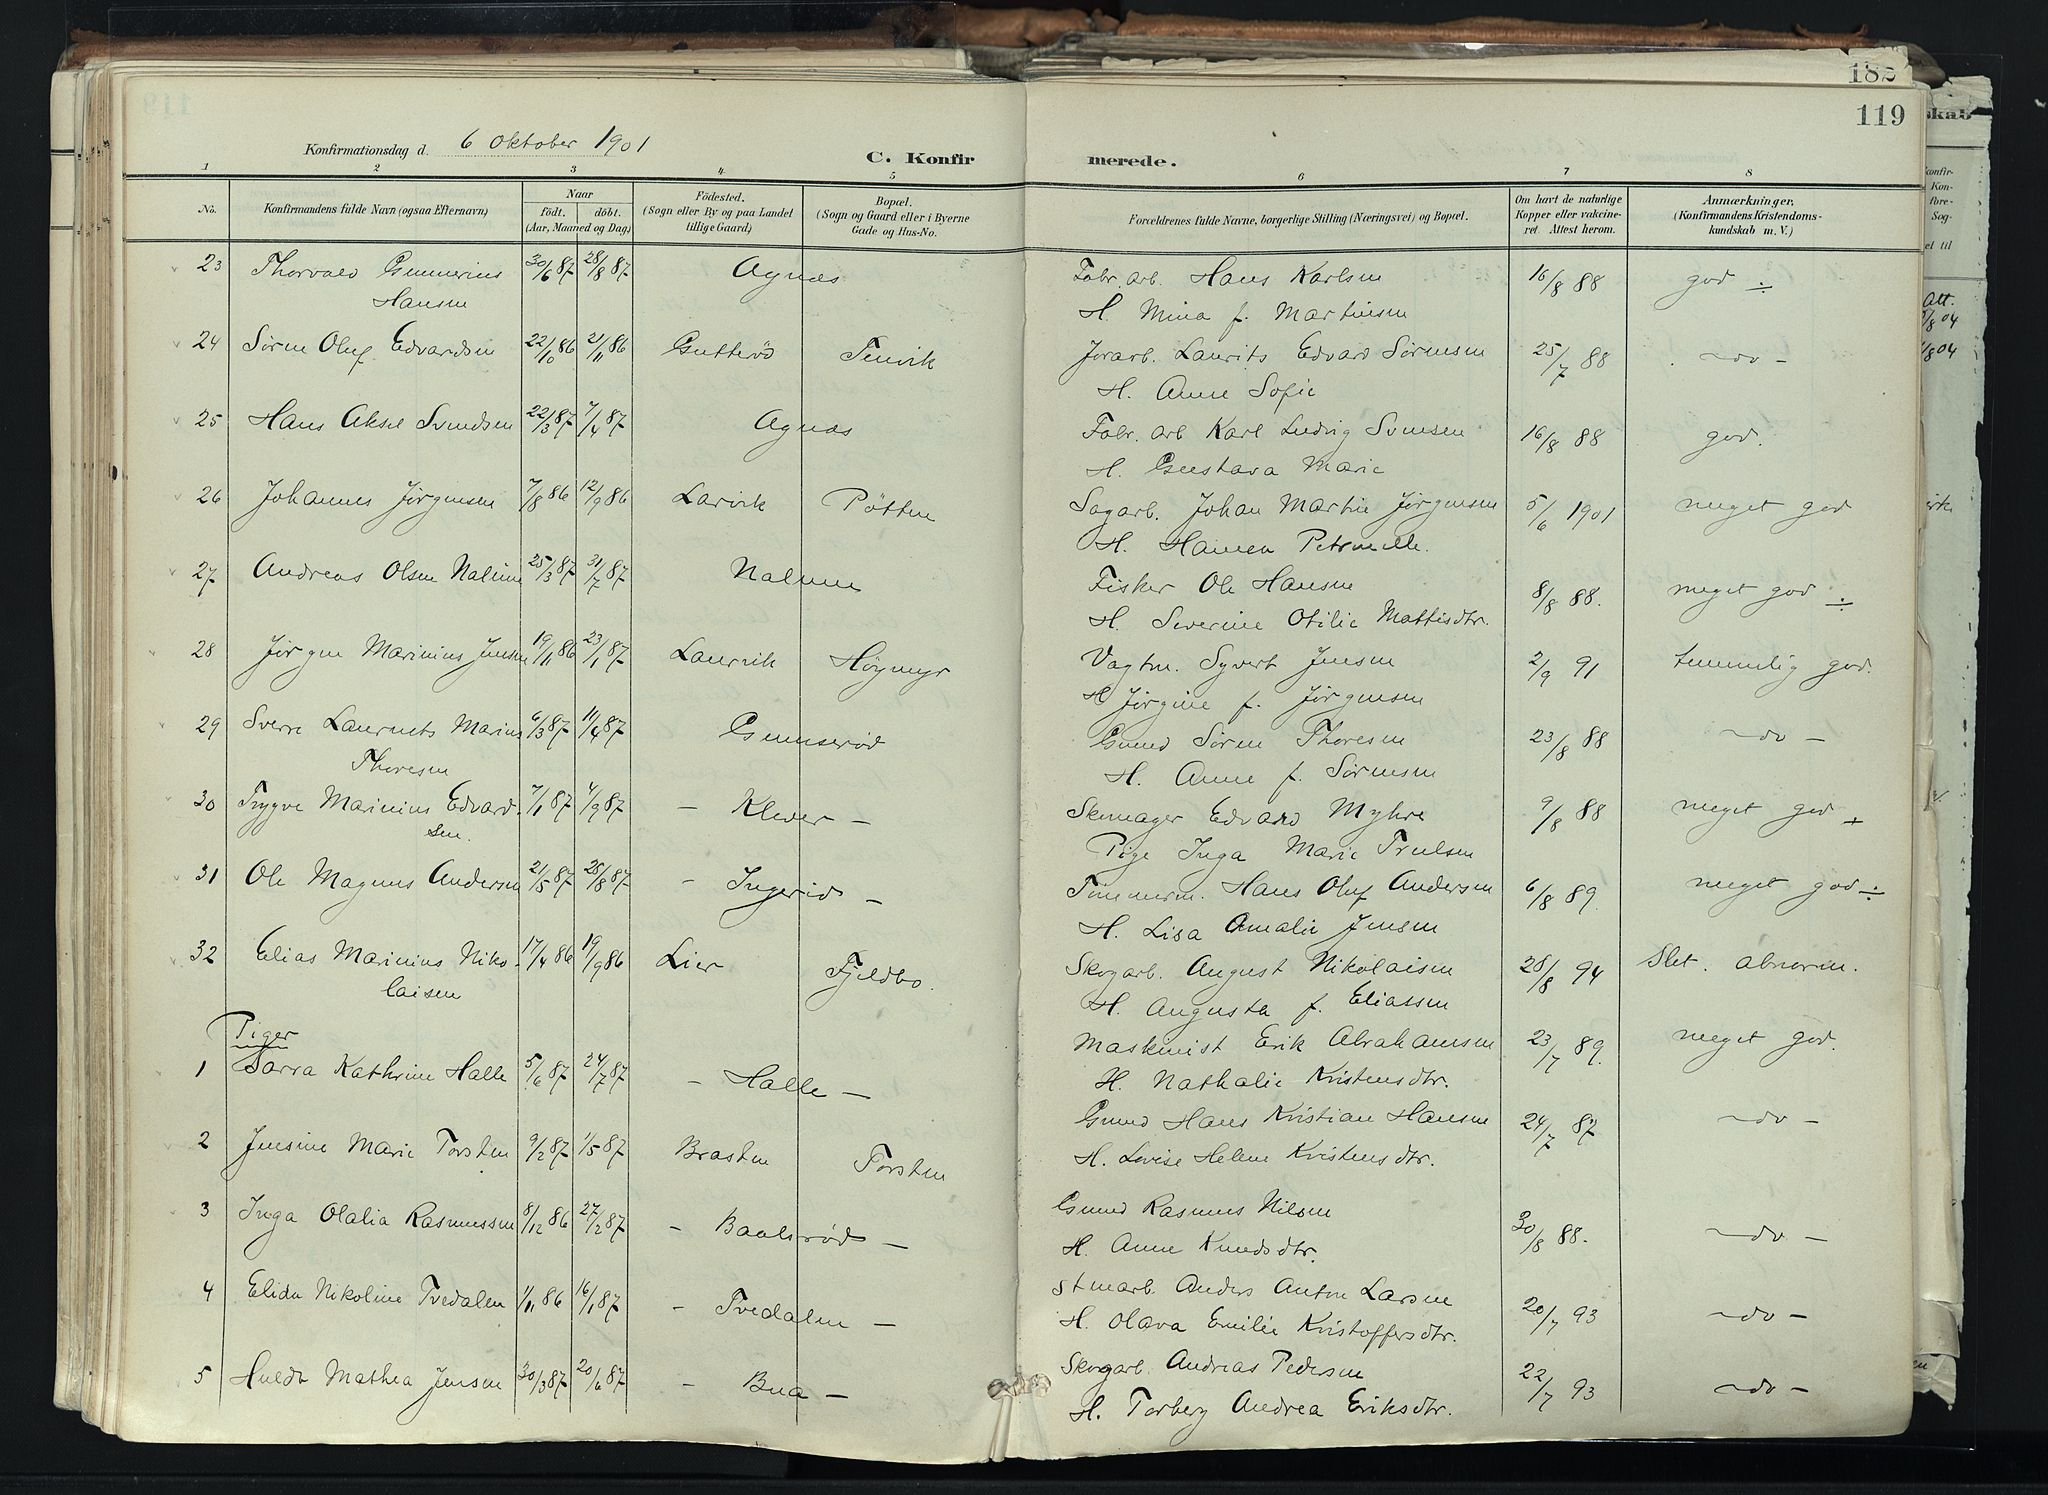 182
119
Konfirmationsdag d. 6 Oktober 1901
C. Konfirmerede.
1 2 3 4 5 6 7 8
No.
Konfirmandens fulde Navn (ogsaa Efternavn)
Naar
födt. döbt.
(Aar, Maaned og Dag)
Födested.
(Sogn eller By og paa Landet
tillige Gaard)
Bopæl.
(Sogn og Gaard eller i Byerne
Gade og Hus-No.
Forældrenes fulde Navne, borgerlige Stilling (Næringsvei) og Bopæl.
Om havt de naturlige
Kopper eller vakcine-
ret. Attest herom.
Anmærkninger,
(Konfirmandens Kristendoms-
kundskab m. V.)
23 Thorvald Gunnerius 30/6 87 28/8 87 Agnæs Fabr. arb. Hans Karlsen 16/8 88 god ÷
Hansen H. Mina f. Martinsen
24 Sørine Oluf Edvardsen 22/10 86 21/11 86 Tenvik Jorarb. Laurits Edvard Sørensen 25/7 88 - do -
H. Anne Sofie
25 Hans Aksel Svendsen 22/3 87 7/4 87 Agnæs Fabr. arb Karl Ludvig Svensen 16/8 88 god.
H. Gustava Marie
26 Johannes Jørgensen 7/8 86 12/9 86 Larvik Pötten Sagarb. Johan Martin Jørgensen 5/6 1901 meget god
H. Hanna Petronelle.
27 Andreas Olsen Nalum 25/3 87 31/7 87 Nalum Fisker Ole Hansen 8/8 88. meget god ÷
H. Severine Otilie Mattisdtr.
28 Jørgen Marinius Jensen 19/11 86 23/1 87 Laurvik Högmyr Vagtm. Syvert Jensen 2/9 91 temmelig god.
H Jørgine f. Jørgensen
29 Sverre Laurits Marius 6/3 87 11/4 87 Gunnerød Grmd Sören Thoresen 23/8 88 - do -
Thoresen H. Anne f. Sørensen
30 Trygve Marinius Edvard- 7/1 87 4/9 87 - Klever - Skomager Edvard Myhre 9/8 88 meget god +
sen. Pige Inga Marie Trulsen
31 Ole Magnus Andersen 21/5 87 28/8 87 - Ingerid - Tömmerm. Hans Oluf Andersen 6/8 89. meget god ÷
H. Lisa Amalie Jensen
32 Elias Marinius Niko- 17/4 86 19/9 86 Lier Fjeldbo. Skogarb. August Nikolaisen 28/8 94 Slet. abnorm.
laisen H. Augusta f. Eliassen
Piger
1 Sarra Kathrine Halle 5/6 87 24/7 87 - Halle - Maskinist Erik Abrahamsen 23/7 89. meget god.
H. Nathalie Kristensdtr.
2 Jensine Marie Torsten 9/2 87 1/5 87 Brasten Torsten Grmd Hans Kristian Hansen 24/7 87 - do -
H. Lovise Helene Kristensdtr.
3 Inga Olalia Rasmussen 8/12 86 27/2 87 - Baalsrød - Grmd Rasmus Nilsen 30/8 88. - do -
H. Anne Knudsdtr.
4 Elida Nikoline Tvedalen 1/11 86 16/1 87 - Tvedalen - Stenarb. Anders Anton Larsen 20/7 93 - do -
H. Olava Emilie Kristoffersdtr.
5 Huldt Mathea Jensen 30/3 87 20/6 87 - Bua - Skogarb. Andreas Pedersen 22/7 93 - do -
H. Torberg Andrea Eriksdtr.